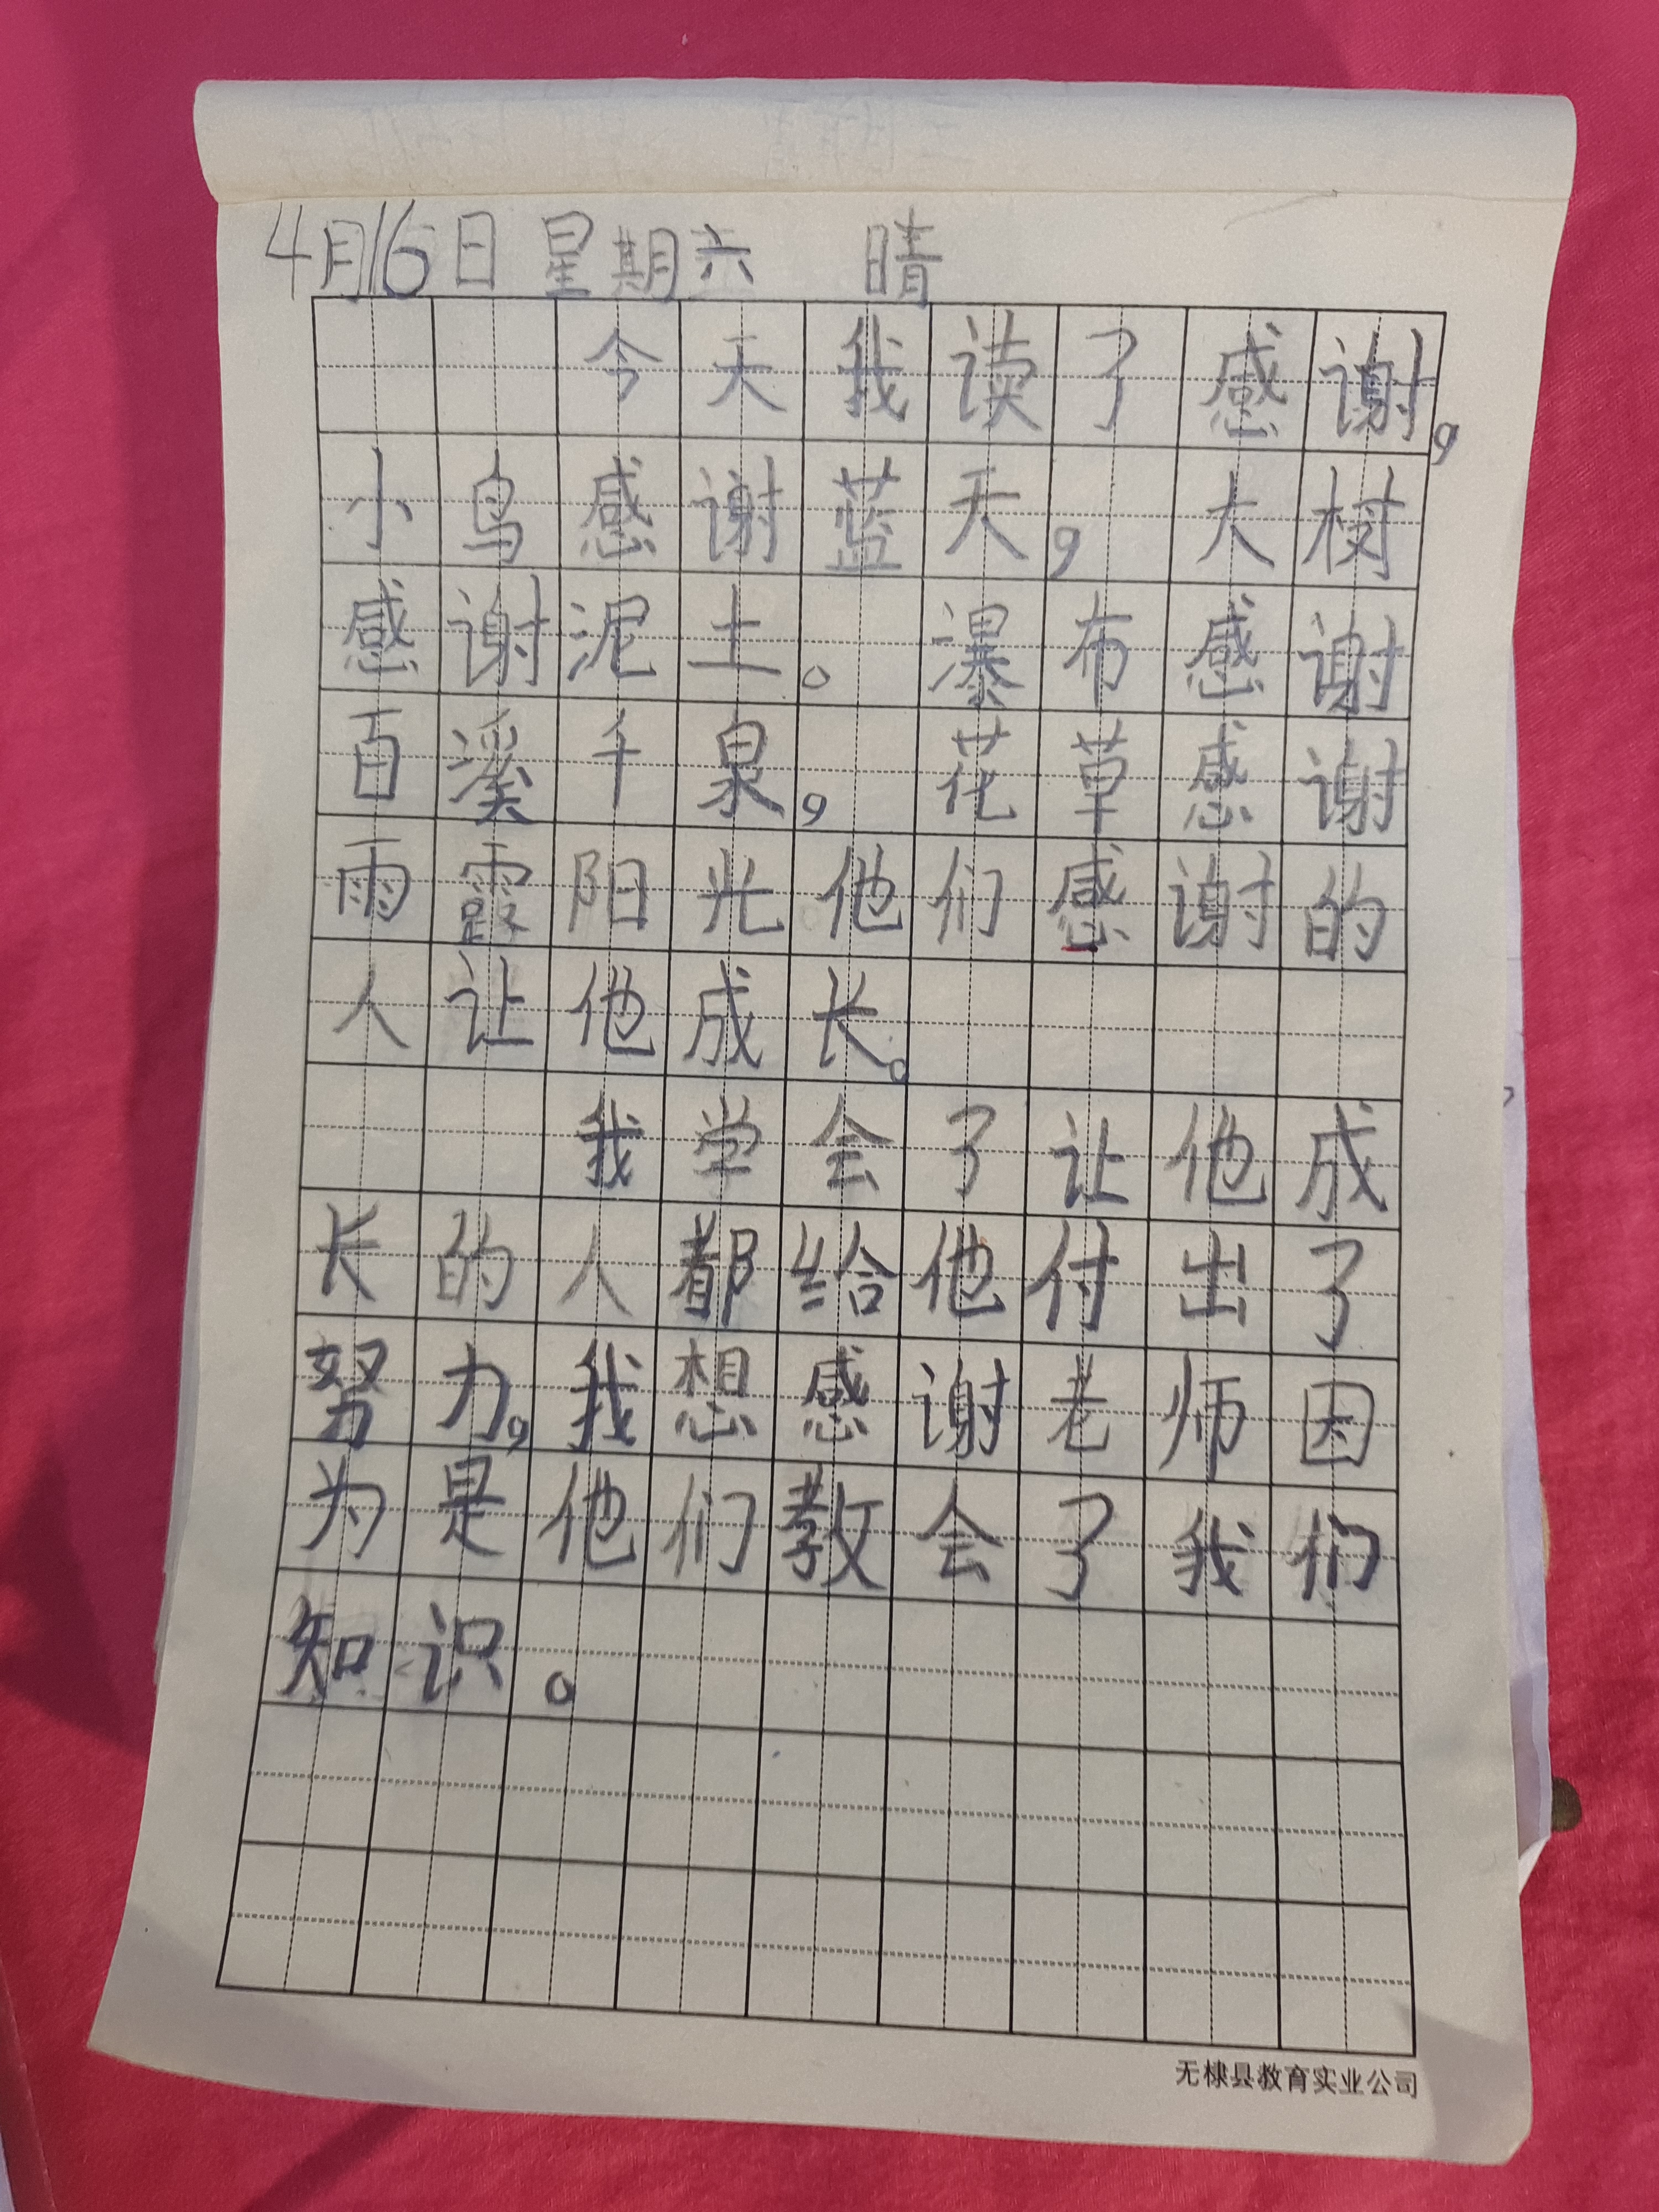 4月16日 星期六 晴
今天我读了感谢，
小鸟感谢蓝天，大树
感谢泥土。瀑布感谢
百溪千泉，花草感谢
雨霞阳光他们感谢的
人让他成长。
我学会了让他成
长的人都给他付出了
努力，我想感谢老师因
为是他们教会了我们
知识。
无棣县教育实业公司